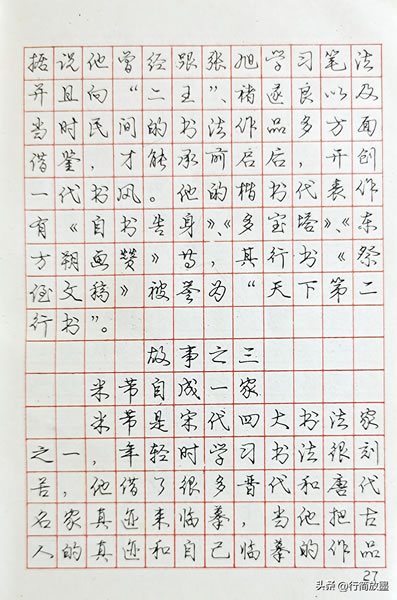 据说他曾经跟张旭学习笔法
并且向“二王”、褚遂良以及
当时民间的书法作品多方面
借鉴，才能承前启后，开创
一代书风。他的楷书代表作
有《自书告身》、《多宝塔》、《东
方朔画赞》等，其行书《祭
侄文稿》被誉为“天下第二
行书”。
故事之三
米芾自成一家
米芾是宋代四大书法家
之一，年轻时学习书法很刻
苦，他借了很多晋代和唐代
名家真迹来临摹，当他把古
人的真迹和自己临摹的作品
27
头条@行简放墨